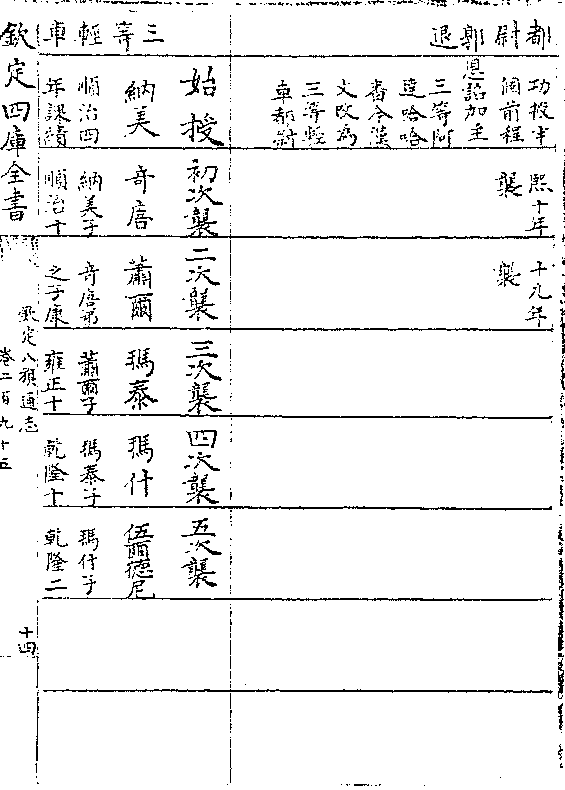 都尉郭退
功授半
個前程
恩詔加至
三等阿
達哈哈
番今漢
文改為
三等輕
車都尉
熙十年
襲
十九年
襲
三等輕車
始授
納美
順治四
年課績
初次襲
奇唐
納美子
順治十
二次襲
蕭爾
奇唐弟
之子康
三次襲
瑪泰
蕭爾子
雍正十
四次襲
瑪什
瑪泰子
乾隆十
五次襲
伍爾德尼
瑪什子
乾隆二
欽定四庫全書
欽定八旗通志
卷二百九十五
十四